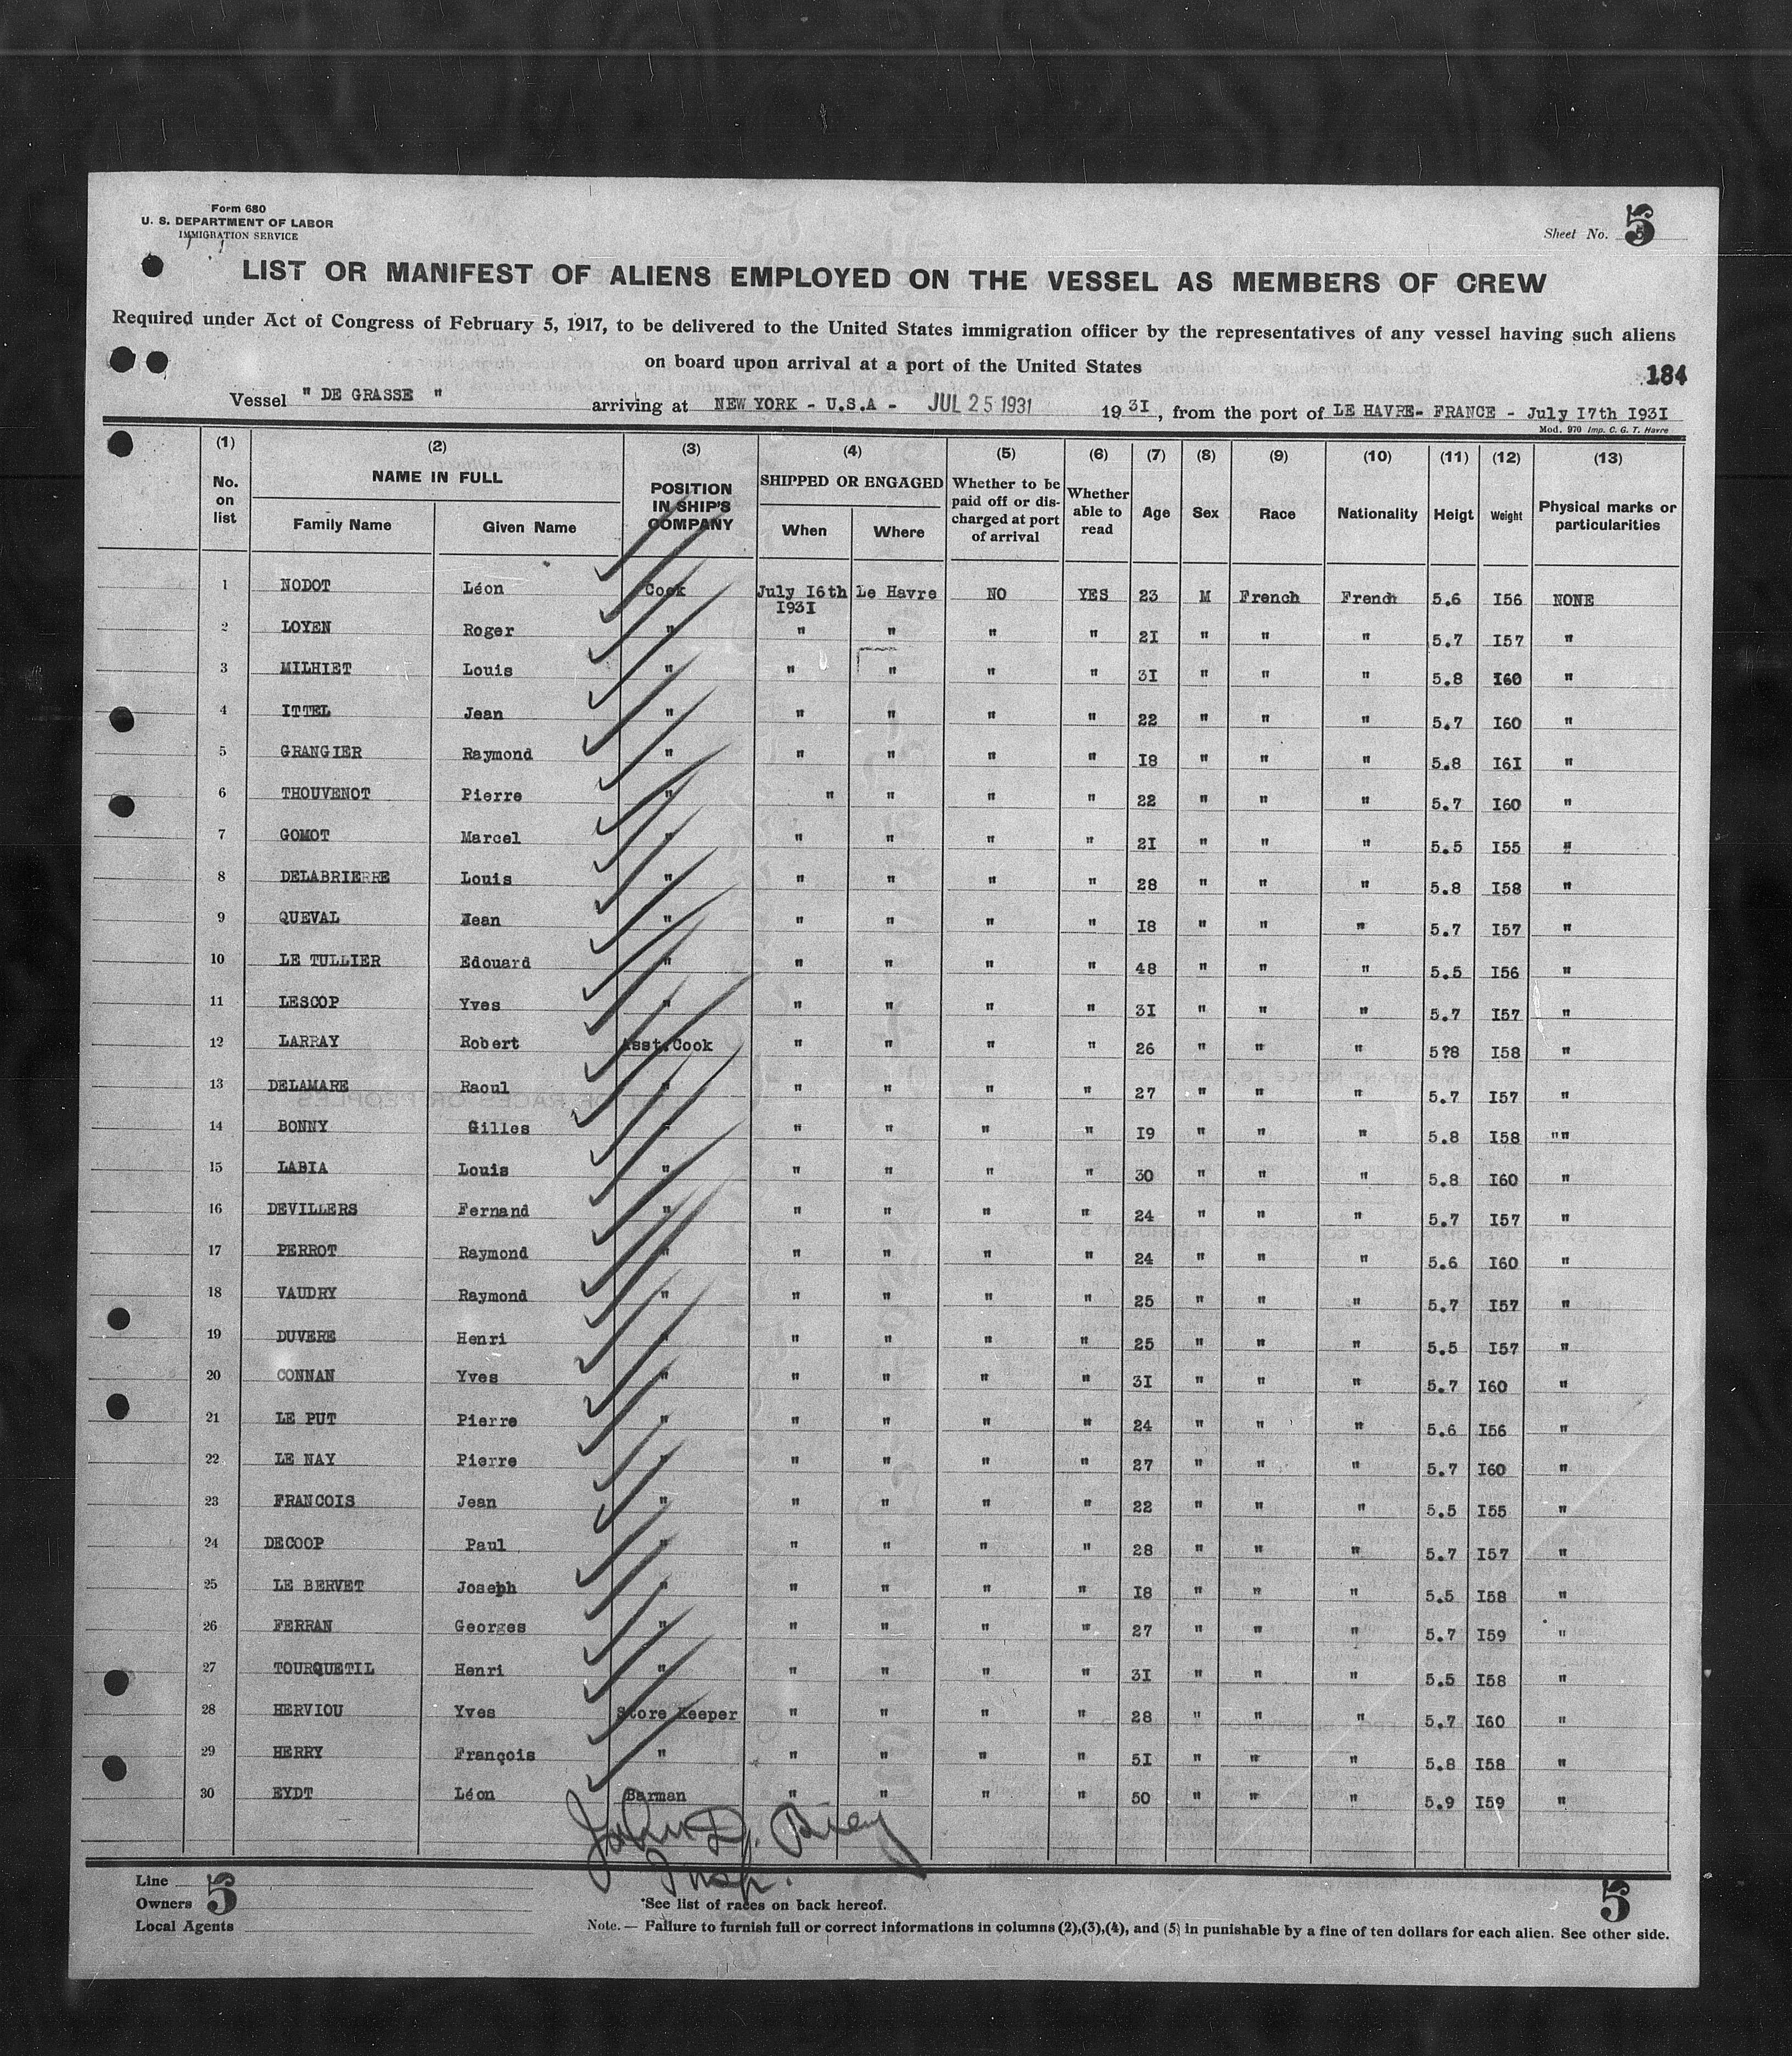 Form 680
U. S. DEPARTMENT OF LABOR
IMMIGRATION SERVICE
Sheet No. 5
LIST OR MANIFEST OF ALIENS EMPLOYED ON THE VESSEL AS MEMBERS OF CREW
Required under Act of Congress of February 5, 1917, to be delivered to the United States immigration officer by the representatives of any vessel having such aliens
on board upon arrival at a port of the United States
184
Vessel " DE GRASSE " arriving at NEW YORK - U.S.A - JUL 25 1931 19 3I, from the port of LE HAVRE- FRANCE - July I7th I93I
Mod. 970 Imp. C. G. T. Havre
(1) (2) (3) (4) (5) (6) (7) (8) (9) (10) (11) (12) (13)
No. on list NAME IN FULL Family Name Given Name POSITION IN SHIP'S COMPANY SHIPPED OR ENGAGED When Where Whether to be paid off or discharged at port of arrival Whether able to read Age Sex Race Nationality Heigt Weight Physical marks or particularities
1 NODOT Léon Cook July I6th I93I Le Havre NO YES 23 M French French 5.6 I56 NONE
2 LOYEN Roger " " " " " 2I " " " 5.7 I57 "
3 MILHIET Louis " " " " " 3I " " " 5.8 I60 "
4 ITTEL Jean " " " " " 22 " " " 5.7 I60 "
5 GRANGIER Raymond " " " " " I8 " " " 5.8 I6I "
6 THOUVENOT Pierre " " " " " 22 " " " 5.7 I60 "
7 GOMOT Marcel " " " " " 2I " " " 5.5 I55 "
8 DELABRIERRE Louis " " " " " 28 " " " 5.8 I58 "
9 QUEVAL Jean " " " " " I8 " " " 5.7 I57 "
10 LE TULLIER Edouard " " " " " 48 " " " 5.5 I56 "
11 LESCOP Yves " " " " " 3I " " " 5.7 I57 "
12 LARRAY Robert Asst.Cook " " " " 26 " " " 5?8 I58 "
13 DELAMARE Raoul " " " " " 27 " " " 5.7 I57 "
14 BONNY Gilles " " " " " I9 " " " 5.8 I58 ""
15 LABIA Louis " " " " " 30 " " " 5.8 I60 "
16 DEVILLERS Fernand " " " " " 24 " " " 5.7 I57 "
17 PERROT Raymond " " " " " 24 " " " 5.6 I60 "
18 VAUDRY Raymond " " " " " 25 " " " 5.7 I57 "
19 DUVERE Henri " " " " " 25 " " " 5.5 I57 "
20 CONNAN Yves " " " " " 3I " " " 5.7 I60 "
21 LE PUT Pierre " " " " " 24 " " " 5.6 I56 "
22 LE NAY Pierre " " " " " 27 " " " 5.7 I60 "
23 FRANCOIS Jean " " " " " 22 " " " 5.5 I55 "
24 DECOOP Paul " " " " " 28 " " " 5.7 I57 "
25 LE BERVET Joseph " " " " " I8 " " " 5.5 I58 "
26 FERRAN Georges " " " " " 27 " " " 5.7 I59 "
27 TOURQUETIL Henri " " " " " 3I " " " 5.5 I58 "
28 HERVIOU Yves Store Keeper " " " " 28 " " " 5.7 I60 "
29 HERRY François " " " " " 5I " " " 5.8 I58 "
30 EYDT Léon Barman " " " " 50 " " " 5.9 I59 "
John D.
Insp.
Line
Owners 5
Local Agents
*See list of races on back hereof.
5
Note. — Failure to furnish full or correct informations in columns (2),(3),(4), and (5) in punishable by a fine of ten dollars for each alien. See other side.